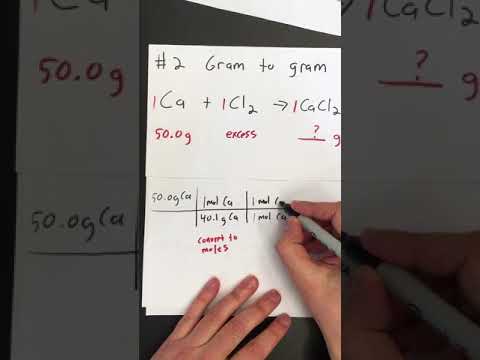 #2 Gram to gram
1Ca + 1Cl2 → 1CaCl2
50.0g excess ? g
50.0g Ca 1mol Ca 1 mol C
40.1g Ca 1mol Ca
convert to
moles